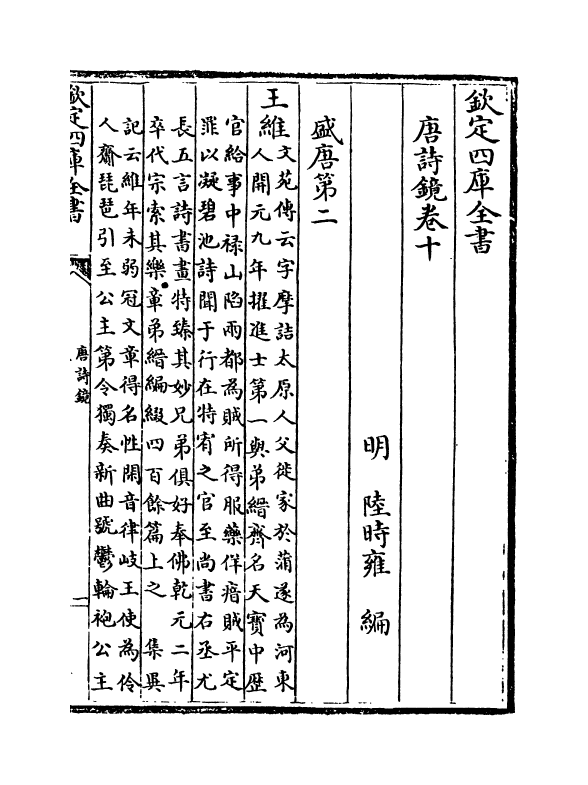 欽定四庫全書
唐詩鏡卷十
明 陸時雍 編
盛唐第二
王維
文苑傳云字摩詰太原人父徙家於蒲遂為河東
人開元九年擢進士第一與弟縉齊名天寶中歴
官給事中禄山陷兩都為賊所得服藥佯瘖賊平定
罪以凝碧池詩聞于行在特宥之官至尚書右丞尤
長五言詩書畫特臻其妙兄弟俱好奉佛乾元二年
卒代宗索其樂章弟縉編綴四百餘篇上之 集異
記云維年未弱冠文章得名性閑音律岐王使為伶
人齎琵琶引至公主第令獨奏新曲號鬱輪袍公主
欽定四庫全書
唐詩鏡